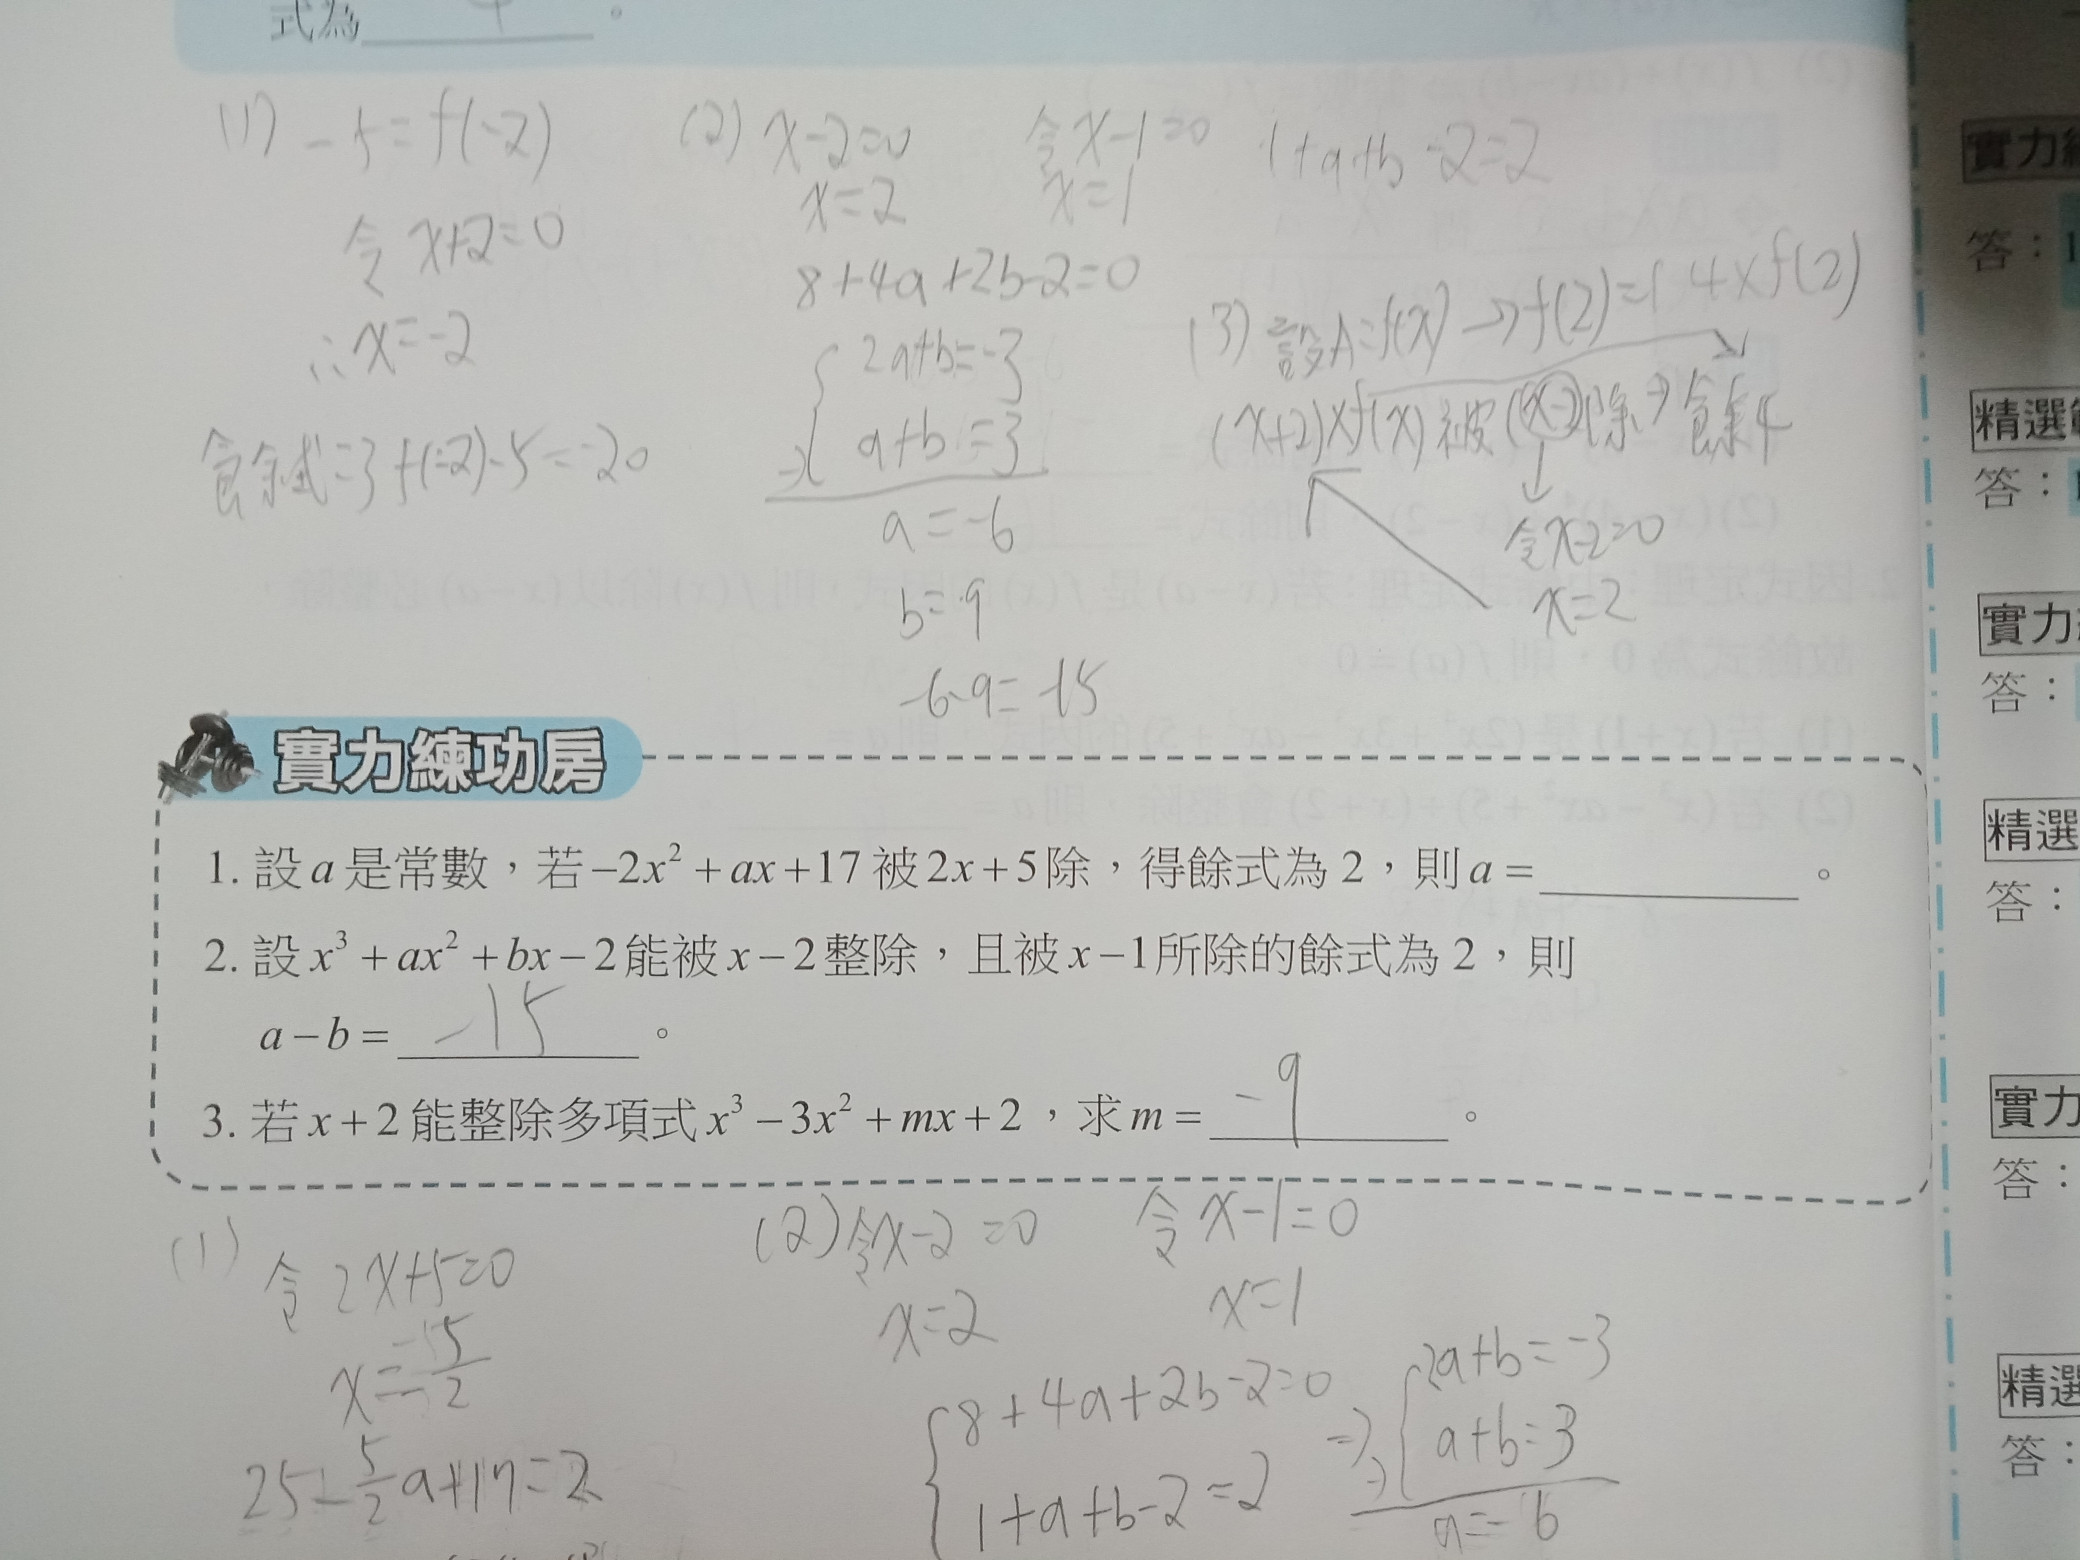 式為 4 。
(1) -5=f(-2)
令 x+2=0
∴x=-2
餘式=3f(-2)-5=-20
(2) x-2=0
x=2
令x-1=0
x=1
1+a+b-2=2
8+4a+2b-2=0
2a+b=-3
a+b=3
a=-6
b=9
-6-9=-15
(3) 設A=f(x)→f(2)=1 4×f(2)
(x+2)×f(x)被(x-2)除→餘4
令x-2=0
x=2
實力練功房
1. 設a是常數,若-2x²+ax+17被2x+5除,得餘式為 2,則a= 。
2. 設x³+ax²+bx-2能被x-2整除,且被x-1所除的餘式為 2,則
a-b= -15 。
3. 若x+2能整除多項式x³-3x²+mx+2,求m= -9 。
(1)
令2x+5=0
x=-5/2
(2)令x-2=0
x=2
令x-1=0
x=1
8+4a+2b-2=0
1+a+b-2=2
⇒ 2a+b=-3
a+b=3
a=-6
實力
答:
精選
答:
實力
答:
精選
答:
實力
答:
精選
答: